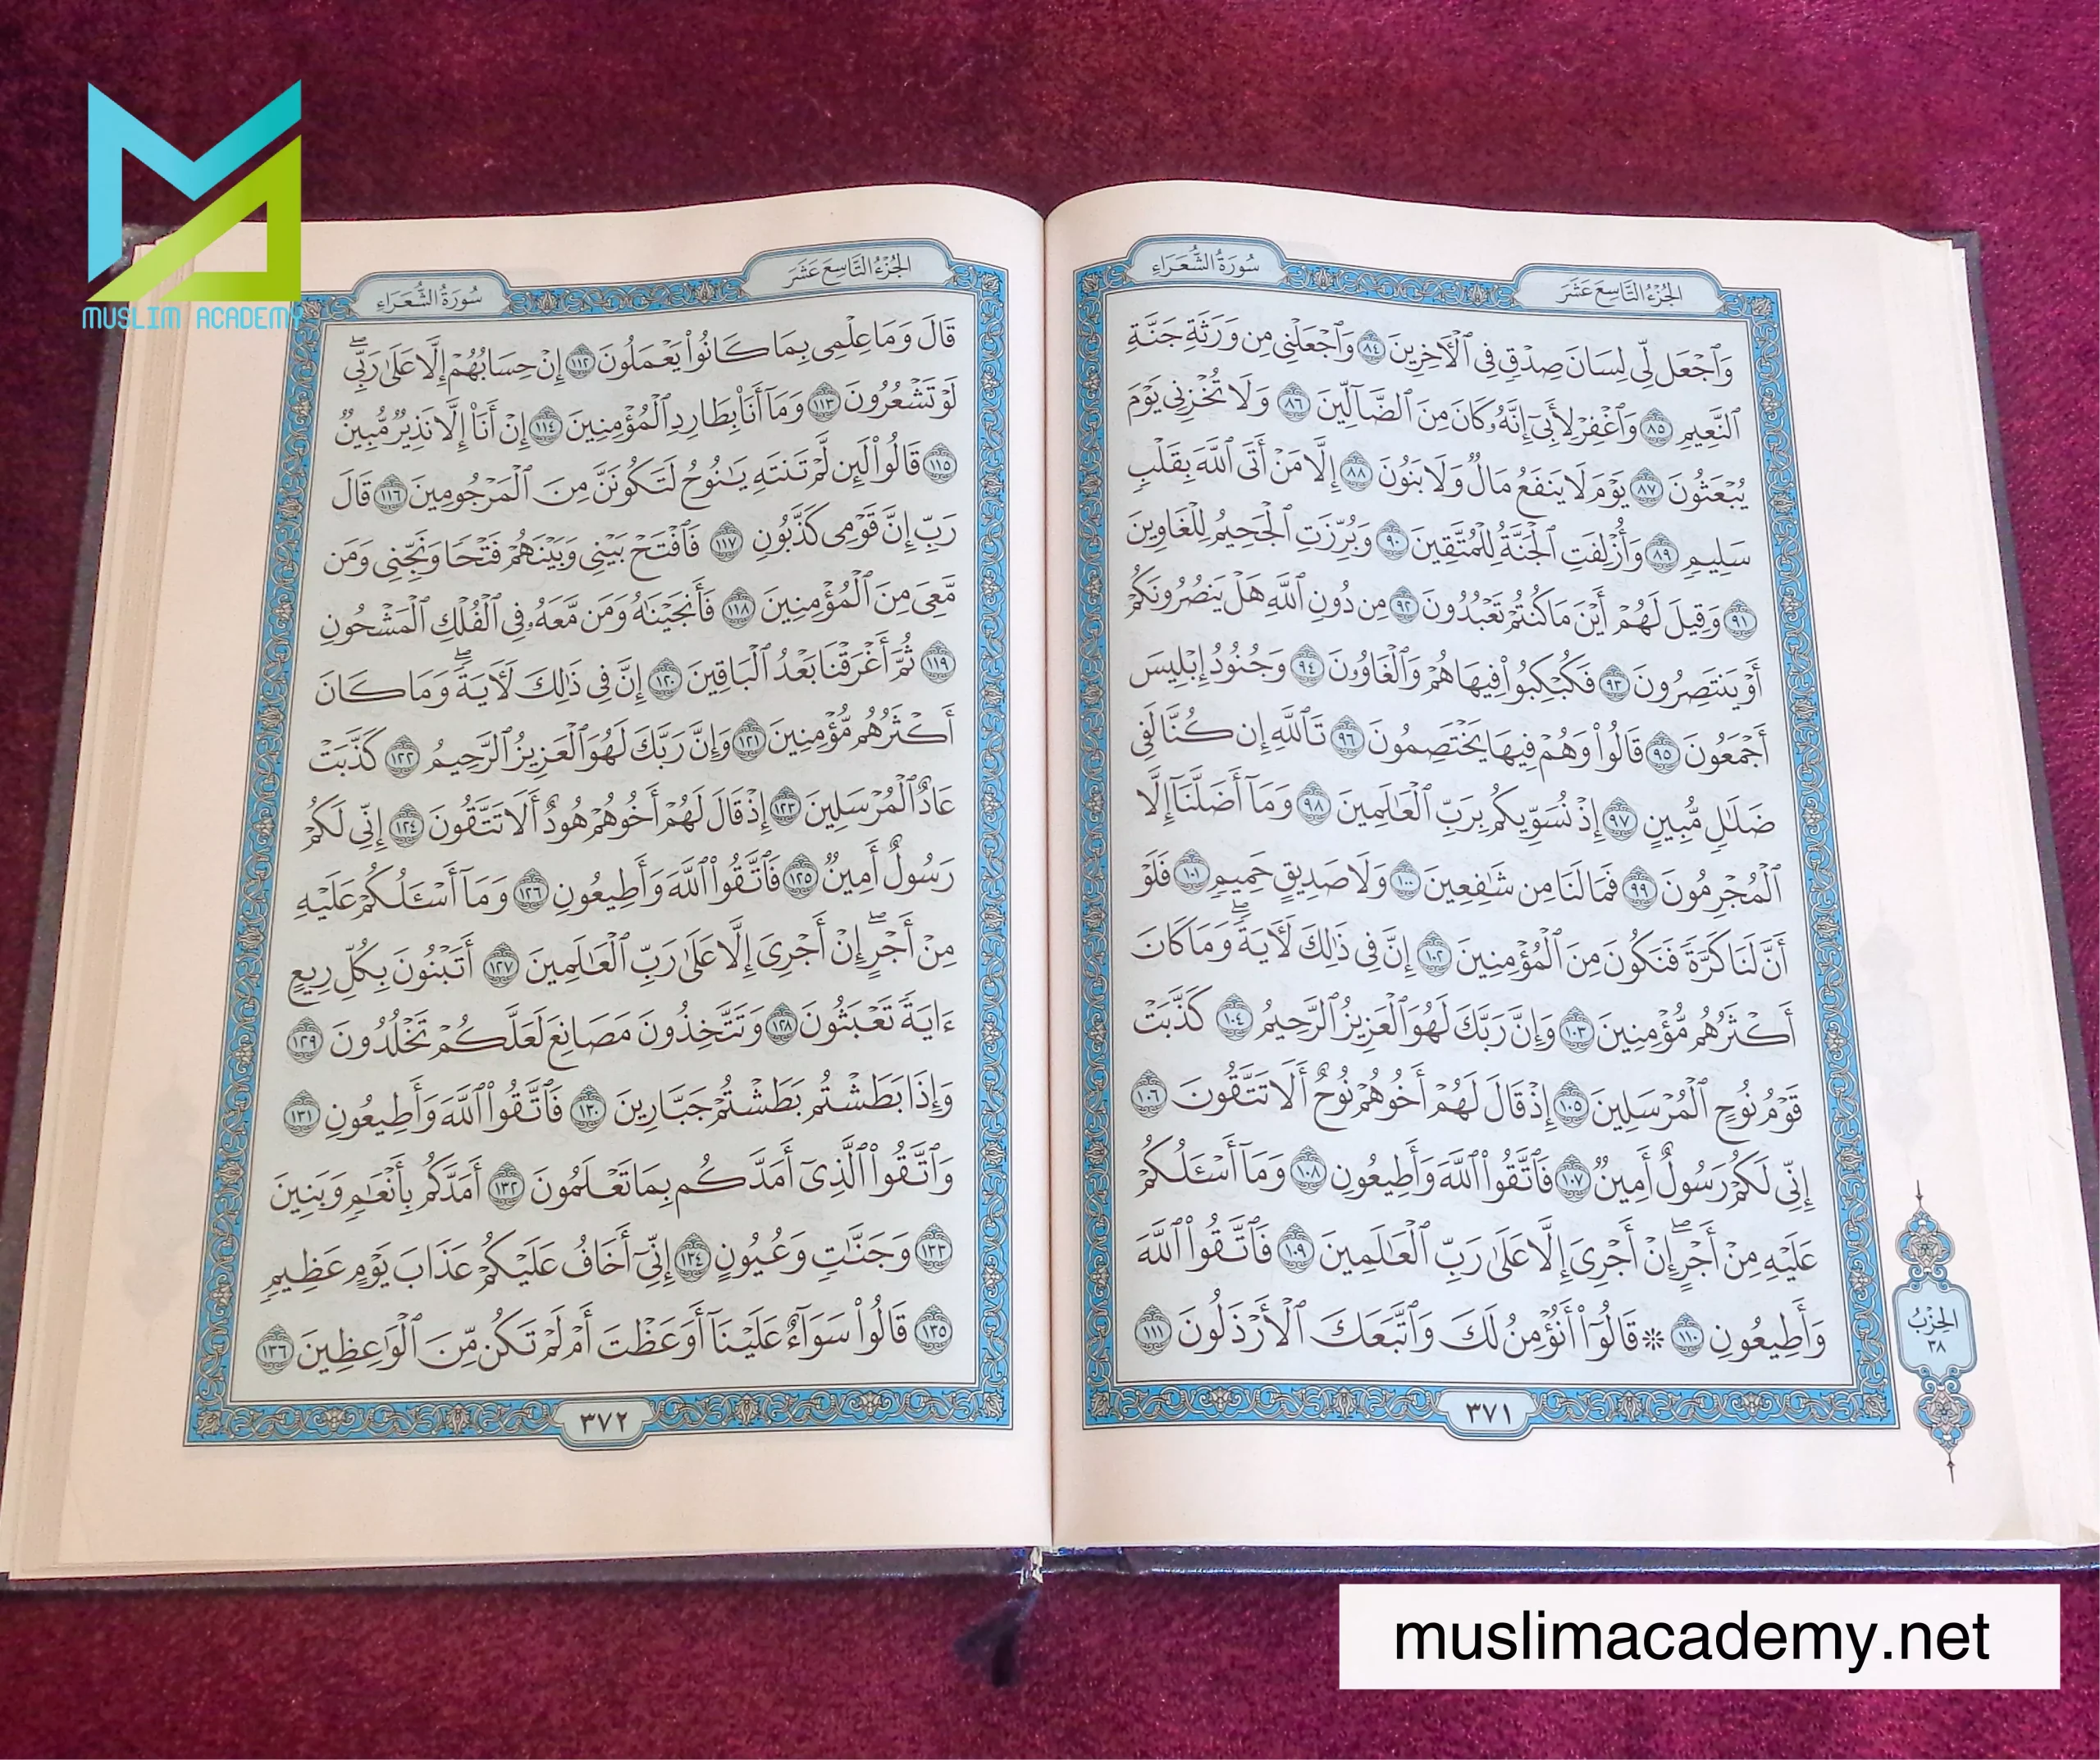 MUSLIM ACADEMY
سُورَةُ الشُّعَرَاءِ
الجُزْءُ التَّاسِعَ عَشَرَ
وَٱجْعَل لِّى لِسَانَ صِدْقٍ فِى ٱلْـَٔاخِرِينَ ٨٤ وَٱجْعَلْنِى مِن وَرَثَةِ جَنَّةِ
ٱلنَّعِيمِ ٨٥ وَٱغْفِرْ لِأَبِىٓ إِنَّهُۥ كَانَ مِنَ ٱلضَّآلِّينَ ٨٦ وَلَا تُخْزِنِى يَوْمَ
يُبْعَثُونَ ٨٧ يَوْمَ لَا يَنفَعُ مَالٌ وَلَا بَنُونَ ٨٨ إِلَّا مَنْ أَتَى ٱللَّهَ بِقَلْبٍ
سَلِيمٍ ٨٩ وَأُزْلِفَتِ ٱلْجَنَّةُ لِلْمُتَّقِينَ ٩٠ وَبُرِّزَتِ ٱلْجَحِيمُ لِلْغَاوِينَ
٩١ وَقِيلَ لَهُمْ أَيْنَ مَا كُنتُمْ تَعْبُدُونَ ٩٢ مِن دُونِ ٱللَّهِ هَلْ يَنصُرُونَكُمْ
أَوْ يَنتَصِرُونَ ٩٣ فَكُبْكِبُوا۟ فِيهَا هُمْ وَٱلْغَاوُۥنَ ٩٤ وَجُنُودُ إِبْلِيسَ
أَجْمَعُونَ ٩٥ قَالُوا۟ وَهُمْ فِيهَا يَخْتَصِمُونَ ٩٦ تَٱللَّهِ إِن كُنَّا لَفِى
ضَلَٰلٍ مُّبِينٍ ٩٧ إِذْ نُسَوِّيكُم بِرَبِّ ٱلْعَٰلَمِينَ ٩٨ وَمَآ أَضَلَّنَآ إِلَّا
ٱلْمُجْرِمُونَ ٩٩ فَمَا لَنَا مِن شَٰفِعِينَ ١٠٠ وَلَا صَدِيقٍ حَمِيمٍ ١٠١ فَلَوْ
أَنَّ لَنَا كَرَّةً فَنَكُونَ مِنَ ٱلْمُؤْمِنِينَ ١٠٢ إِنَّ فِى ذَٰلِكَ لَـَٔايَةً ۖ وَمَا كَانَ
أَكْثَرُهُم مُّؤْمِنِينَ ١٠٣ وَإِنَّ رَبَّكَ لَهُوَ ٱلْعَزِيزُ ٱلرَّحِيمُ ١٠٤ كَذَّبَتْ
قَوْمُ نُوحٍ ٱلْمُرْسَلِينَ ١٠٥ إِذْ قَالَ لَهُمْ أَخُوهُمْ نُوحٌ أَلَا تَتَّقُونَ ١٠٦
إِنِّى لَكُمْ رَسُولٌ أَمِينٌ ١٠٧ فَٱتَّقُوا۟ ٱللَّهَ وَأَطِيعُونِ ١٠٨ وَمَآ أَسْـَٔلُكُمْ
عَلَيْهِ مِنْ أَجْرٍ ۖ إِنْ أَجْرِىَ إِلَّا عَلَىٰ رَبِّ ٱلْعَٰلَمِينَ ١٠٩ فَٱتَّقُوا۟ ٱللَّهَ
وَأَطِيعُونِ ١١٠ ۞ قَالُوٓا۟ أَنُؤْمِنُ لَكَ وَٱتَّبَعَكَ ٱلْأَرْذَلُونَ ١١١
الحِزْبُ
٣٨
٣٧١
الجُزْءُ التَّاسِعَ عَشَرَ
سُورَةُ الشُّعَرَاءِ
قَالَ وَمَا عِلْمِى بِمَا كَانُوا۟ يَعْمَلُونَ ١١٢ إِنْ حِسَابُهُمْ إِلَّا عَلَىٰ رَبِّى ۖ
لَوْ تَشْعُرُونَ ١١٣ وَمَآ أَنَا۠ بِطَارِدِ ٱلْمُؤْمِنِينَ ١١٤ إِنْ أَنَا۠ إِلَّا نَذِيرٌ مُّبِينٌ
١١٥ قَالُوا۟ لَئِن لَّمْ تَنتَهِ يَٰنُوحُ لَتَكُونَنَّ مِنَ ٱلْمَرْجُومِينَ ١١٦ قَالَ
رَبِّ إِنَّ قَوْمِى كَذَّبُونِ ١١٧ فَٱفْتَحْ بَيْنِى وَبَيْنَهُمْ فَتْحًا وَنَجِّنِى وَمَن
مَّعِىَ مِنَ ٱلْمُؤْمِنِينَ ١١٨ فَأَنجَيْنَٰهُ وَمَن مَّعَهُۥ فِى ٱلْفُلْكِ ٱلْمَشْحُونِ
١١٩ ثُمَّ أَغْرَقْنَا بَعْدُ ٱلْبَاقِينَ ١٢٠ إِنَّ فِى ذَٰلِكَ لَـَٔايَةً ۖ وَمَا كَانَ
أَكْثَرُهُم مُّؤْمِنِينَ ١٢١ وَإِنَّ رَبَّكَ لَهُوَ ٱلْعَزِيزُ ٱلرَّحِيمُ ١٢٢ كَذَّبَتْ
عَادٌ ٱلْمُرْسَلِينَ ١٢٣ إِذْ قَالَ لَهُمْ أَخُوهُمْ هُودٌ أَلَا تَتَّقُونَ ١٢٤ إِنِّى لَكُمْ
رَسُولٌ أَمِينٌ ١٢٥ فَٱتَّقُوا۟ ٱللَّهَ وَأَطِيعُونِ ١٢٦ وَمَآ أَسْـَٔلُكُمْ عَلَيْهِ
مِنْ أَجْرٍ ۖ إِنْ أَجْرِىَ إِلَّا عَلَىٰ رَبِّ ٱلْعَٰلَمِينَ ١٢٧ أَتَبْنُونَ بِكُلِّ رِيعٍ
ءَايَةً تَعْبَثُونَ ١٢٨ وَتَتَّخِذُونَ مَصَانِعَ لَعَلَّكُمْ تَخْلُدُونَ ١٢٩
وَإِذَا بَطَشْتُم بَطَشْتُمْ جَبَّارِينَ ١٣٠ فَٱتَّقُوا۟ ٱللَّهَ وَأَطِيعُونِ ١٣١
وَٱتَّقُوا۟ ٱلَّذِىٓ أَمَدَّكُم بِمَا تَعْلَمُونَ ١٣٢ أَمَدَّكُم بِأَنْعَٰمٍ وَبَنِينَ
١٣٣ وَجَنَّٰتٍ وَعُيُونٍ ١٣٤ إِنِّىٓ أَخَافُ عَلَيْكُمْ عَذَابَ يَوْمٍ عَظِيمٍ
١٣٥ قَالُوا۟ سَوَآءٌ عَلَيْنَآ أَوَعَظْتَ أَمْ لَمْ تَكُن مِّنَ ٱلْوَٰعِظِينَ ١٣٦
٣٧٢
muslimacademy.net